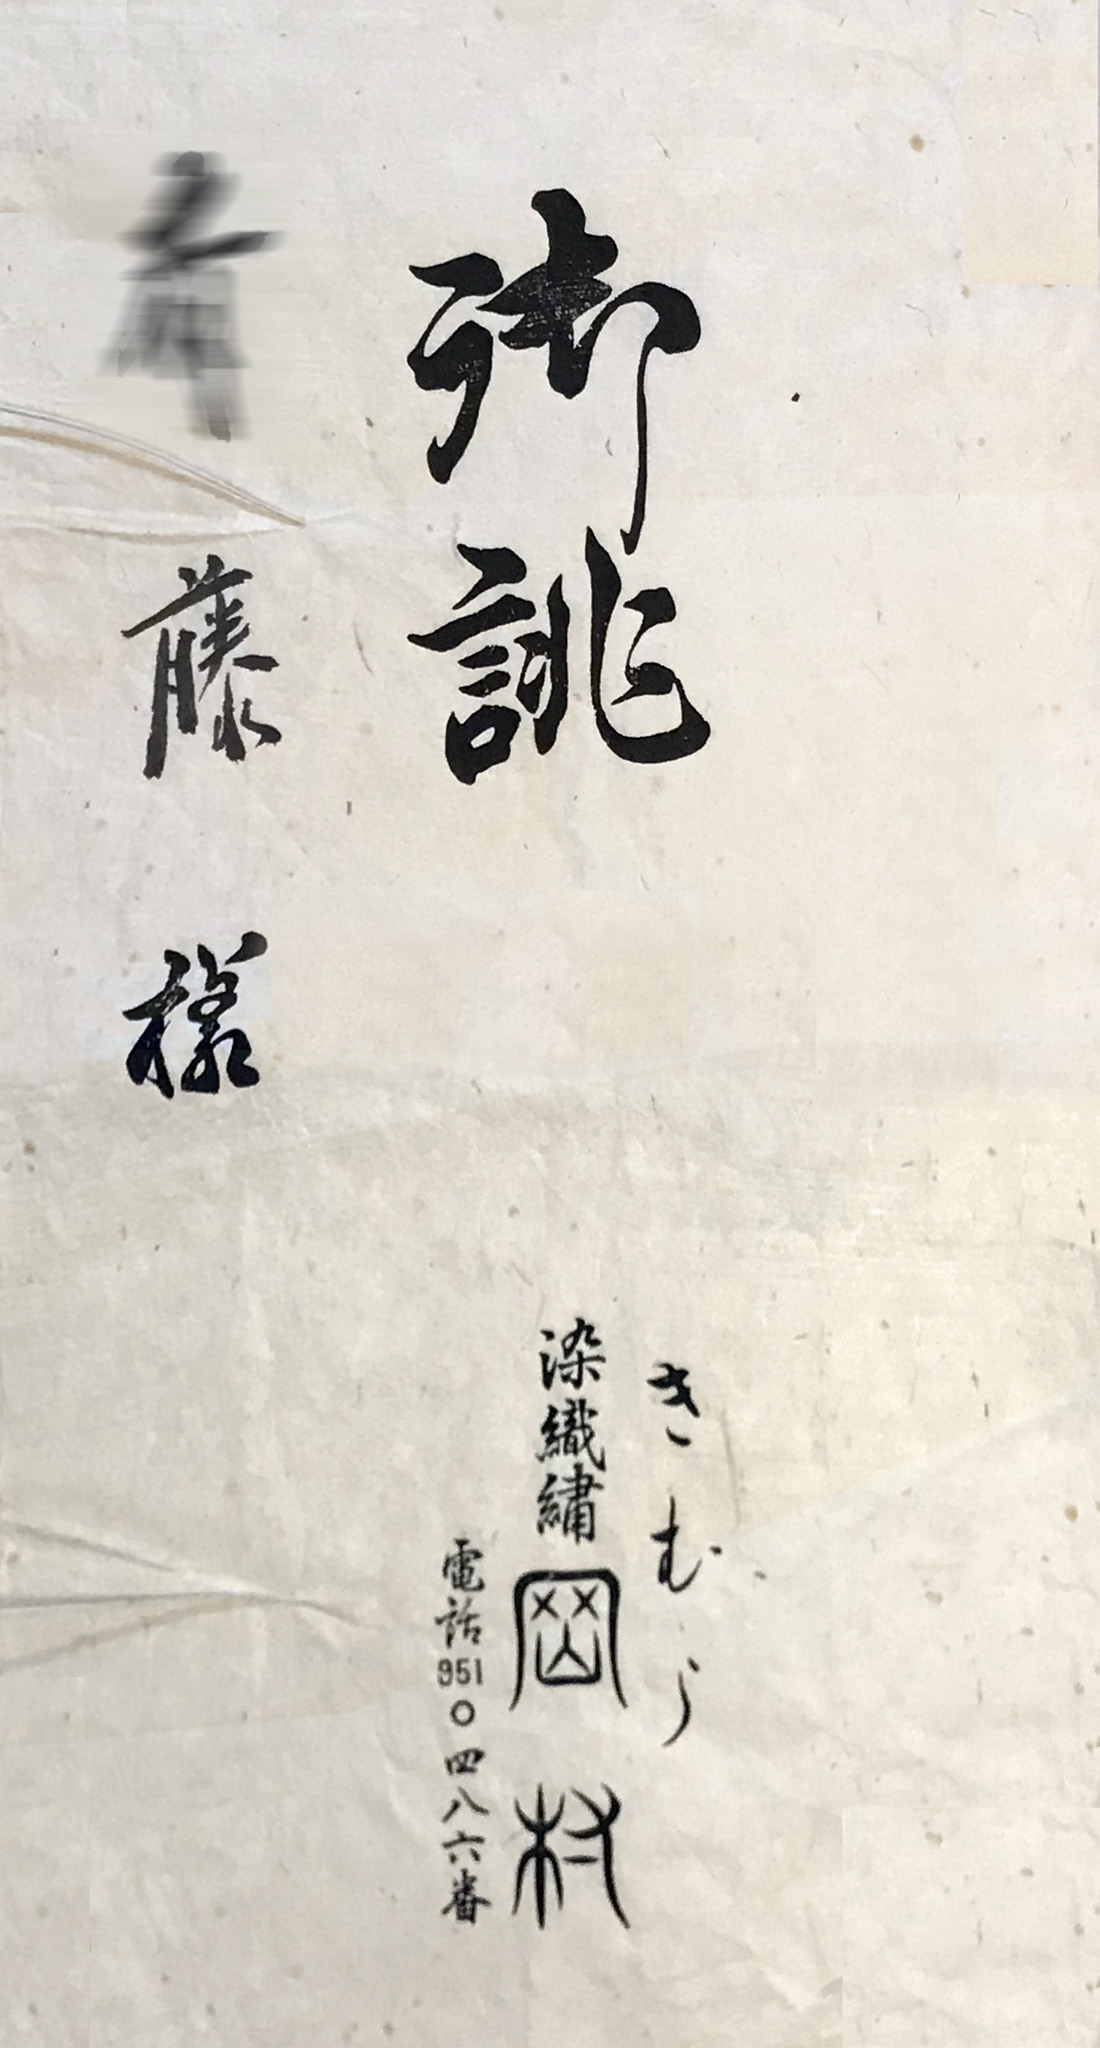 御誂
藤様
きむら
染織繍 岡村
電話951〇四八六番